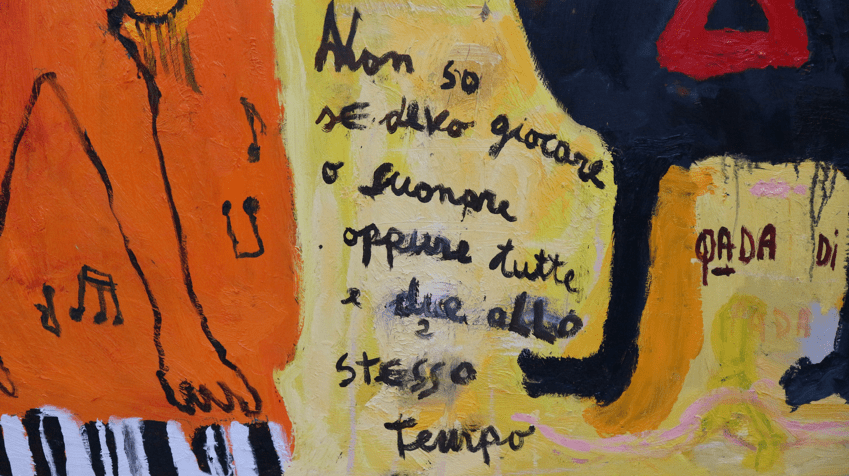 Non so
se devo giocare
o suonare
oppure tutte
e due allo
2
stesso
tempo
PADA Di
PADA